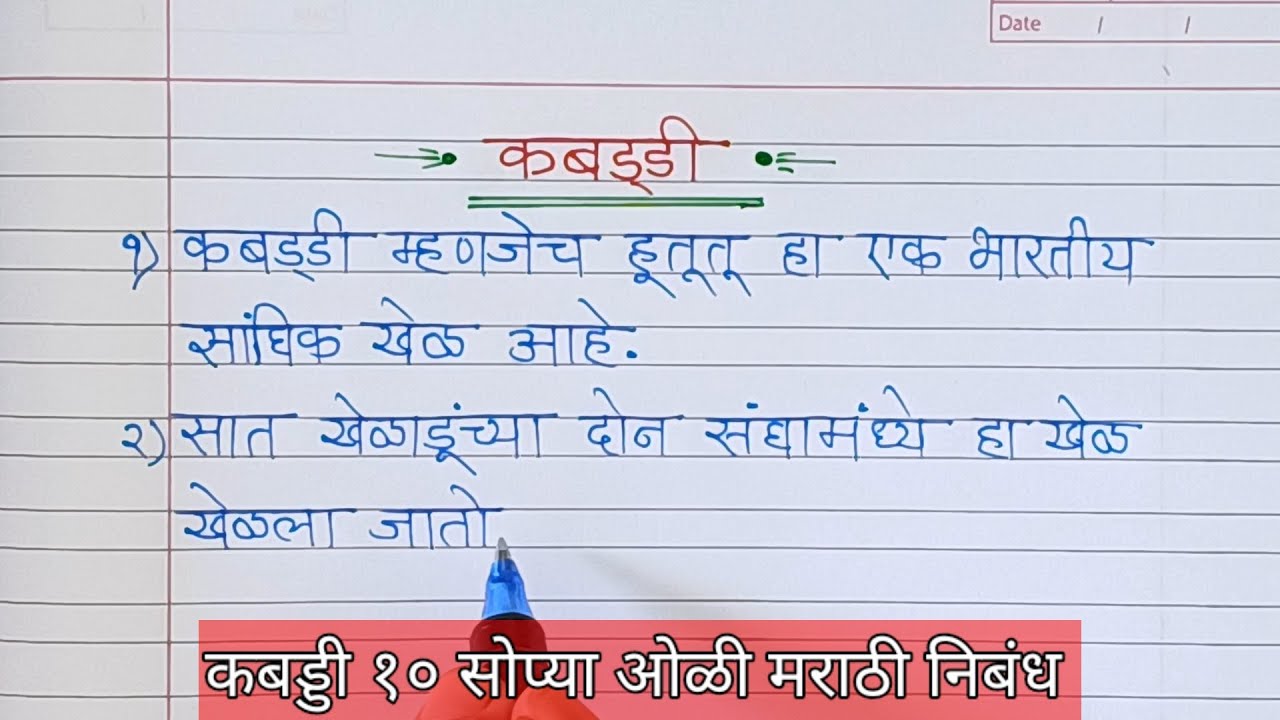 Date / /
कबड्डी
१) कबड्डी म्हणजेच हूतूतू हा एक भारतीय
सांघिक खेळ आहे.
२) सात खेळाडूंच्या दोन संघामंध्ये हा खेळ
खेळला जातो
कबड्डी १० सोप्या ओळी मराठी निबंध